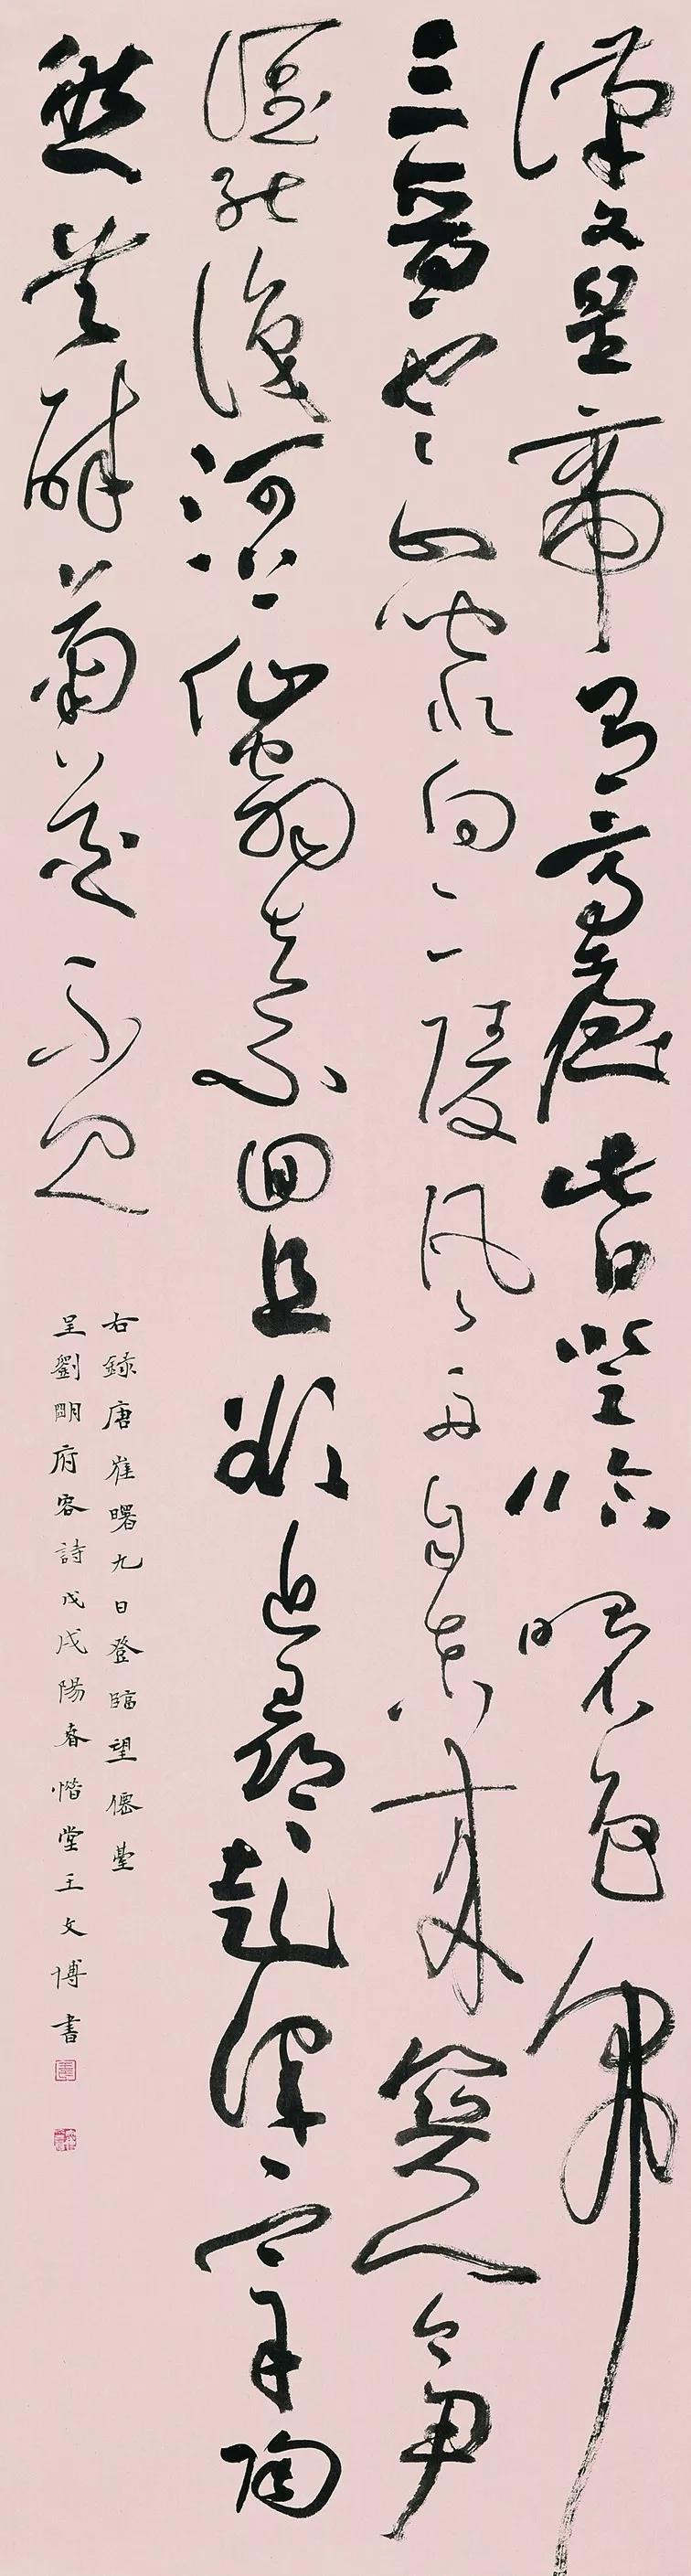 漢文皇帝有高臺此日登臨曙色開
三晉雲山皆北向二陵風雨自東來關門令尹
誰能識河上仙翁去不回且欲近尋彭澤宰陶
然共醉菊花盃
右錄唐崔曙九日登臨望僊臺
呈劉明府容詩戊戌陽春堂王文博書